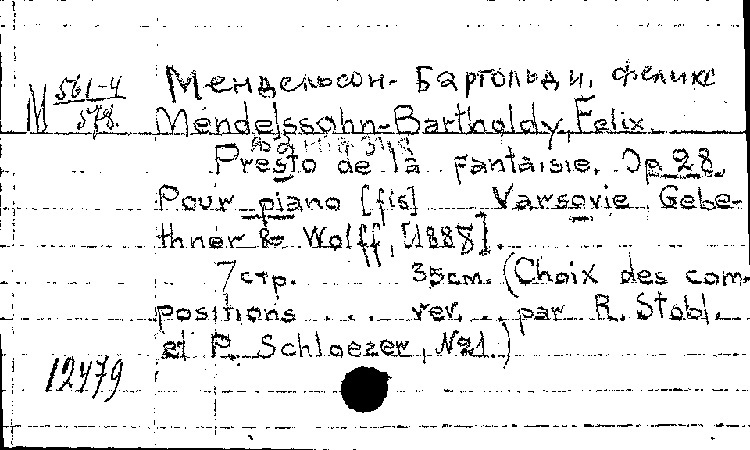 М 561-4/578.
Мендельсон-Бартольди, Феликс
Mendelssohn-Bartholdy, Felix.
Presto de la fantaisie. Op. 28.
Pour piano [fis] Varsovie Gebe-
thner & Wolff, [1888].
7 стр. 35 см. (Choix des com-
positions . . . rev. . . par R. Stobl.
et P. Schloezer, №21.)
12479